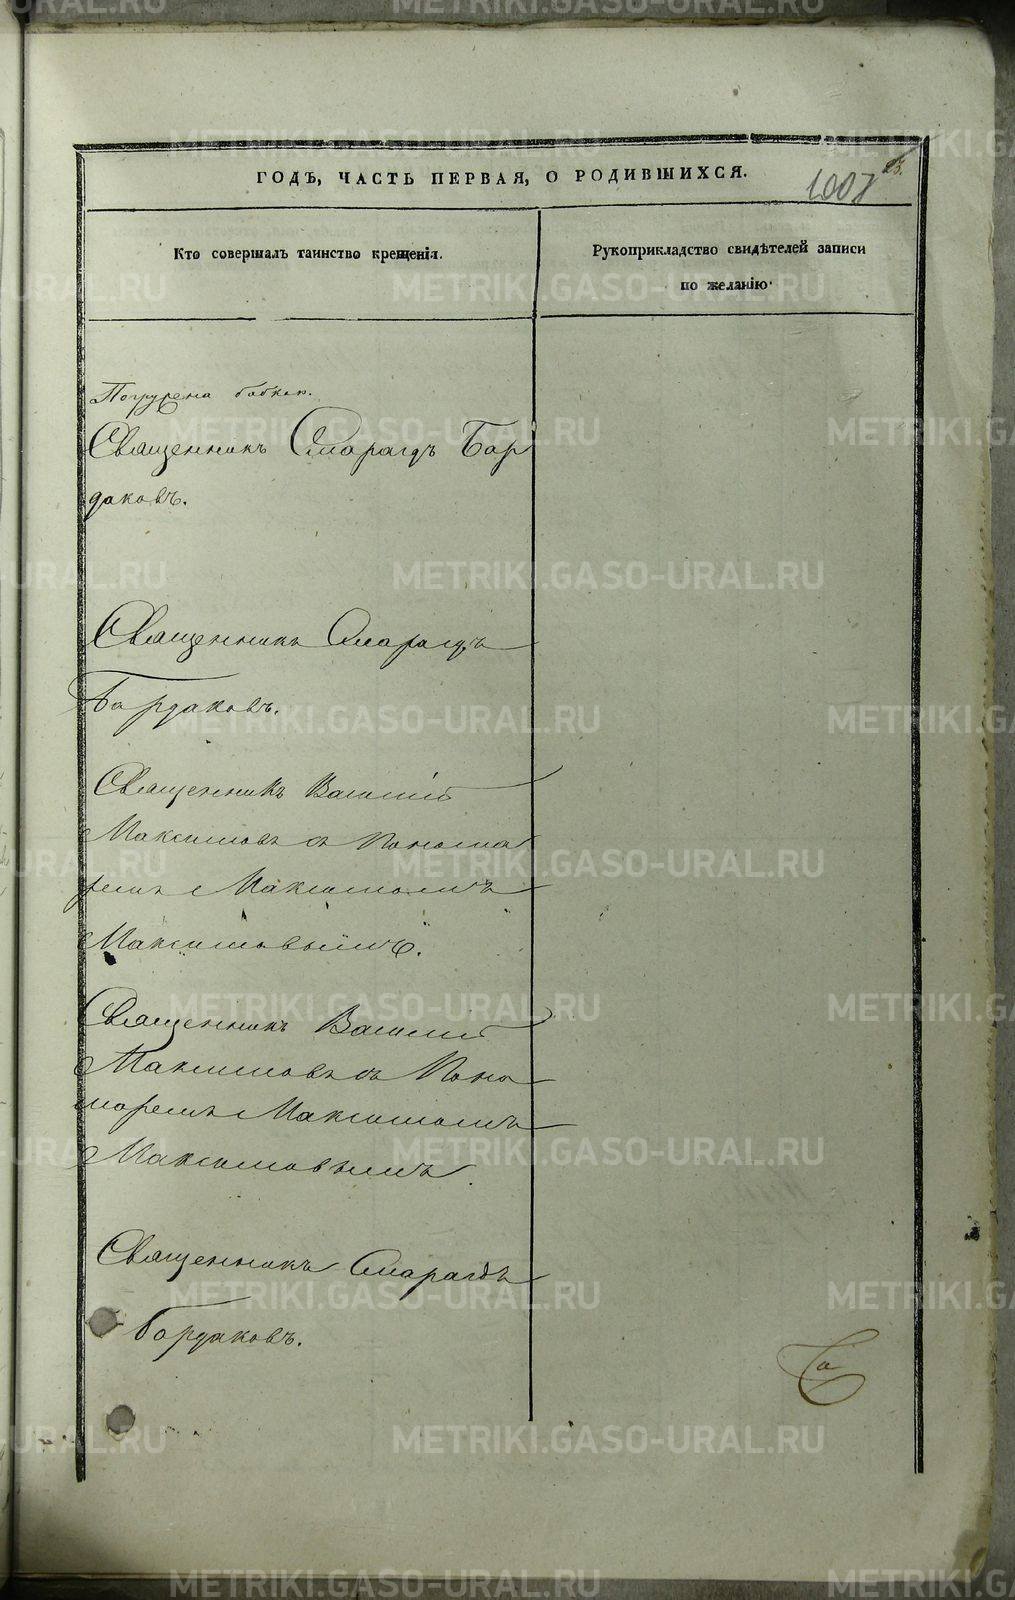 ГОДЪ, ЧАСТЬ ПЕРВАЯ, О РОДИВШИХСЯ.
1007
Кто совершалъ таинство крещенія.
Рукоприкладство свидѣтелей записи
по желанію.
Погружена бабкою.
Священникъ Смарагдъ Бар
даковъ.
Священникъ Смарагдъ
Бардаковъ.
Священникъ Василій
Максимовъ съ Понома
ремъ Максимомъ
Максимовымъ.
Священникъ Василій
Максимовъ съ Поно
маремъ Максимомъ
Максимовымъ.
Священникъ Смарагдъ
Бардаковъ.
METRIKI.GASO-URAL.RU